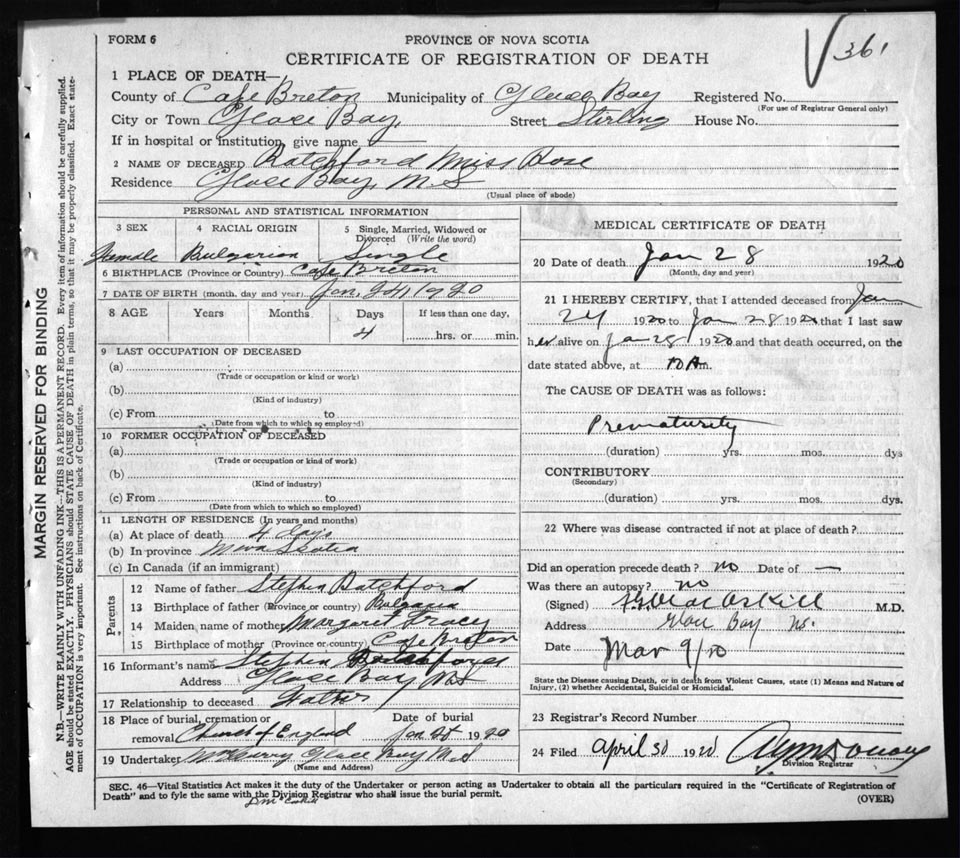 FORM 6
PROVINCE OF NOVA SCOTIA
361
CERTIFICATE OF REGISTRATION OF DEATH
1 PLACE OF DEATH—
County of Cape Breton Municipality of Glace Bay Registered No.
(For use of Registrar General only)
City or Town Glace Bay, Street Stirling House No.
If in hospital or institution, give name
2 NAME OF DECEASED Ratchford Miss Rose
Residence Glace Bay, N.S
(Usual place of abode)
PERSONAL AND STATISTICAL INFORMATION
3 SEX 4 RACIAL ORIGIN 5 Single, Married, Widowed or Divorced (Write the word)
Female Bulgarian Single
6 BIRTHPLACE (Province or Country) Cape Breton
7 DATE OF BIRTH (month, day and year) Jan, 24, 1920
8 AGE Years Months Days If less than one day,
4 hrs. or min.
9 LAST OCCUPATION OF DECEASED
(a)
(Trade or occupation or kind or work)
(b)
(Kind of industry)
(c) From to
(Date from which to which so employed)
10 FORMER OCCUPATION OF DECEASED
(a)
(Trade or occupation or kind of work)
(b)
(Kind of industry)
(c) From to
(Date from which to which so employed)
11 LENGTH OF RESIDENCE (In years and months)
(a) At place of death 4 days
(b) In province Nova Scotia
(c) In Canada (if an immigrant)
Parents
12 Name of father Stephen Ratchford
13 Birthplace of father (Province or country) Bulgaria
14 Maiden name of mother Margaret Tracey
15 Birthplace of mother (Province or country) Cape Breton
16 Informant's name Stephen Ratchford
Address Glace Bay N.S
17 Relationship to deceased Father
18 Place of burial, cremation or Date of burial
removal Church of England Jan 1920
19 Undertaker Glace Bay N.S
(Name and Address)
MEDICAL CERTIFICATE OF DEATH
20 Date of death Jan 28 1920
(Month, day and year)
21 I HEREBY CERTIFY, that I attended deceased from Jan
24 1920 to Jan 28 1920 that I last saw
her alive on Jan 28 1920 and that death occurred, on the
date stated above, at 10 A m.
The CAUSE OF DEATH was as follows:
Prematurity
(duration) yrs. mos. dys
CONTRIBUTORY
(Secondary)
(duration) yrs. mos. dys.
22 Where was disease contracted if not at place of death?
Did an operation precede death? no Date of —
Was there an autopsy? no
(Signed) M.D.
Address Glace Bay N.S.
Date Mar 9/20
State the Disease causing Death, or in death from Violent Causes, state (1) Means and Nature of
Injury, (2) whether Accidental, Suicidal or Homicidal.
23 Registrar's Record Number
24 Filed April 30 1920
Division Registrar
SEC. 46—Vital Statistics Act makes it the duty of the Undertaker or person acting as Undertaker to obtain all the particulars required in the "Certificate of Registration of
Death" and to fyle the same with the Division Registrar who shall issue the burial permit.
(OVER)
MARGIN RESERVED FOR BINDING
N.B.—WRITE PLAINLY, WITH UNFADING INK—THIS IS A PERMANENT RECORD. Every item of information should be carefully supplied.
AGE should be stated EXACTLY. PHYSICIANS should STATE CAUSE OF DEATH in plain terms, so that it may be properly classified. Exact statement of OCCUPATION is very important. See instructions on back of Certificate.